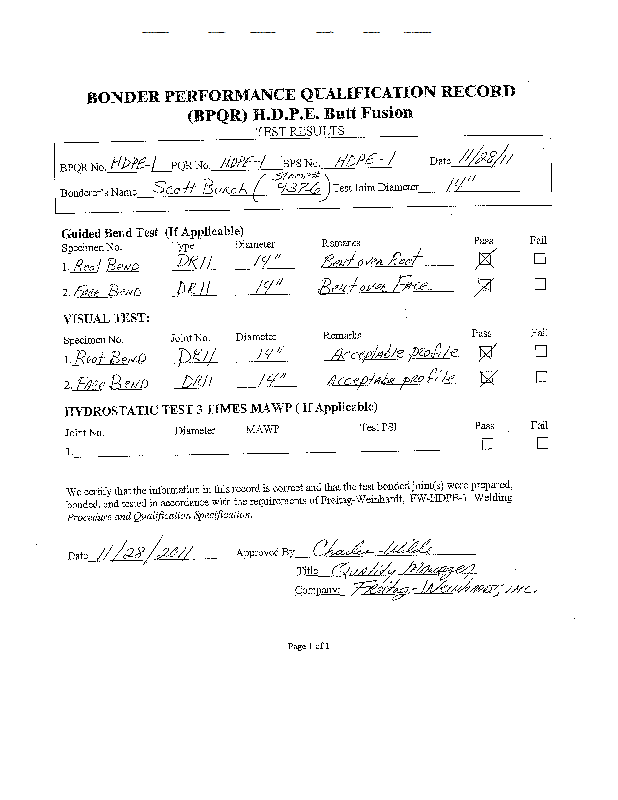 BONDER PERFORMANCE QUALIFICATION RECORD
(BPQR) H.D.P.E. Butt Fusion
TEST RESULTS
BPQR No. HDPE-1 PQR No. HDPE-1 BPS No. HDPE-1 Date 11/28/11
Bonderer's Name Scott Burch ( 4376 ) Test Joint Diameter 14"
Guided Bend Test (If Applicable)
Specimen No. Type Diameter Remarks Pass Fail
1. Root Bend DR11 14" Bent over Root
2. Face Bend DR11 14" Bent over Face
VISUAL TEST:
Specimen No. Joint No. Diameter Remarks Pass Fail
1. Root Bend DR11 14" Acceptable profile
2. Face Bend DR11 14" Acceptable profile
HYDROSTATIC TEST 3 TIMES MAWP ( If Applicable)
Joint No. Diameter MAWP Test PSI Pass Fail
1.
We certify that the information in this record is correct and that the test bonded joint(s) were prepared,
bonded, and tested in accordance with the requirements of Freitag-Weinhardt, FW-HDPE-1 Welding
Procedure and Qualification Specification.
Date 11/28/2011 Approved By Charles
Title Quality Manager
Company: Freitag-Weinhardt, Inc.
Page 1 of 1